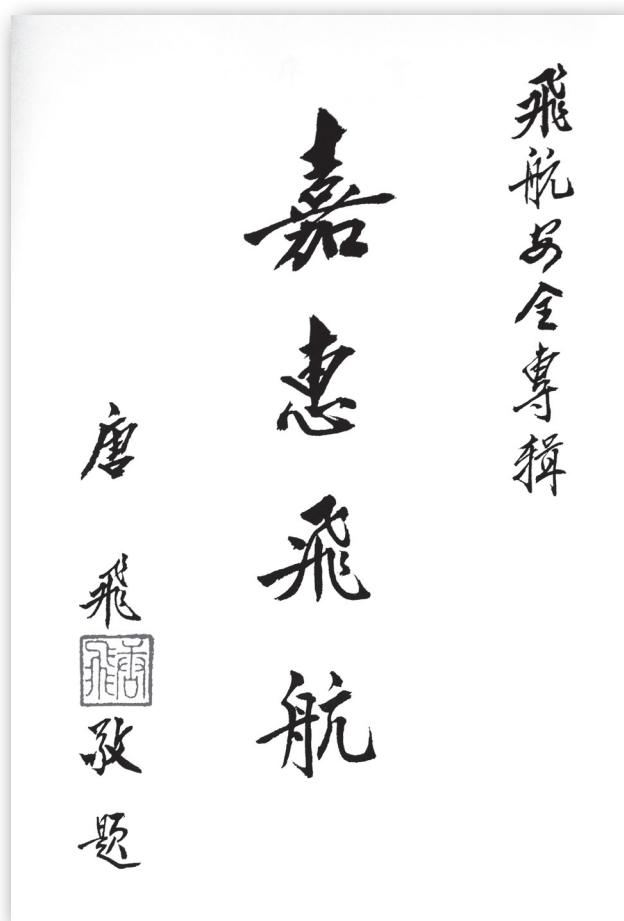 飛航安全專輯
嘉惠飛航
唐飛
唐飛
敬題